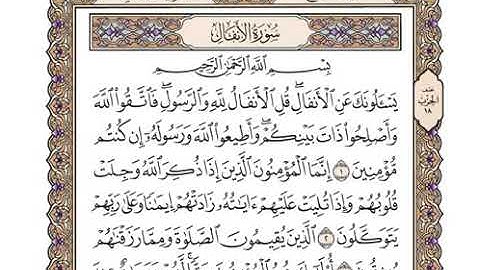 سُورَةُ الأَنفَالِ
بِسْمِ اللَّهِ الرَّحْمَٰنِ الرَّحِيمِ
يَسْـَٔلُونَكَ عَنِ الْأَنفَالِ ۖ قُلِ الْأَنفَالُ لِلَّهِ وَالرَّسُولِ ۖ فَاتَّقُوا اللَّهَ
وَأَصْلِحُوا ذَاتَ بَيْنِكُمْ ۖ وَأَطِيعُوا اللَّهَ وَرَسُولَهُ إِن كُنتُم
مُّؤْمِنِينَ ١ إِنَّمَا الْمُؤْمِنُونَ الَّذِينَ إِذَا ذُكِرَ اللَّهُ وَجِلَتْ
قُلُوبُهُمْ وَإِذَا تُلِيَتْ عَلَيْهِمْ ءَايَاتُهُ زَادَتْهُمْ إِيمَانًا وَعَلَىٰ رَبِّهِمْ
يَتَوَكَّلُونَ ٢ الَّذِينَ يُقِيمُونَ الصَّلَوٰةَ وَمِمَّا رَزَقْنَاهُمْ
نصف
الحزب
١٨